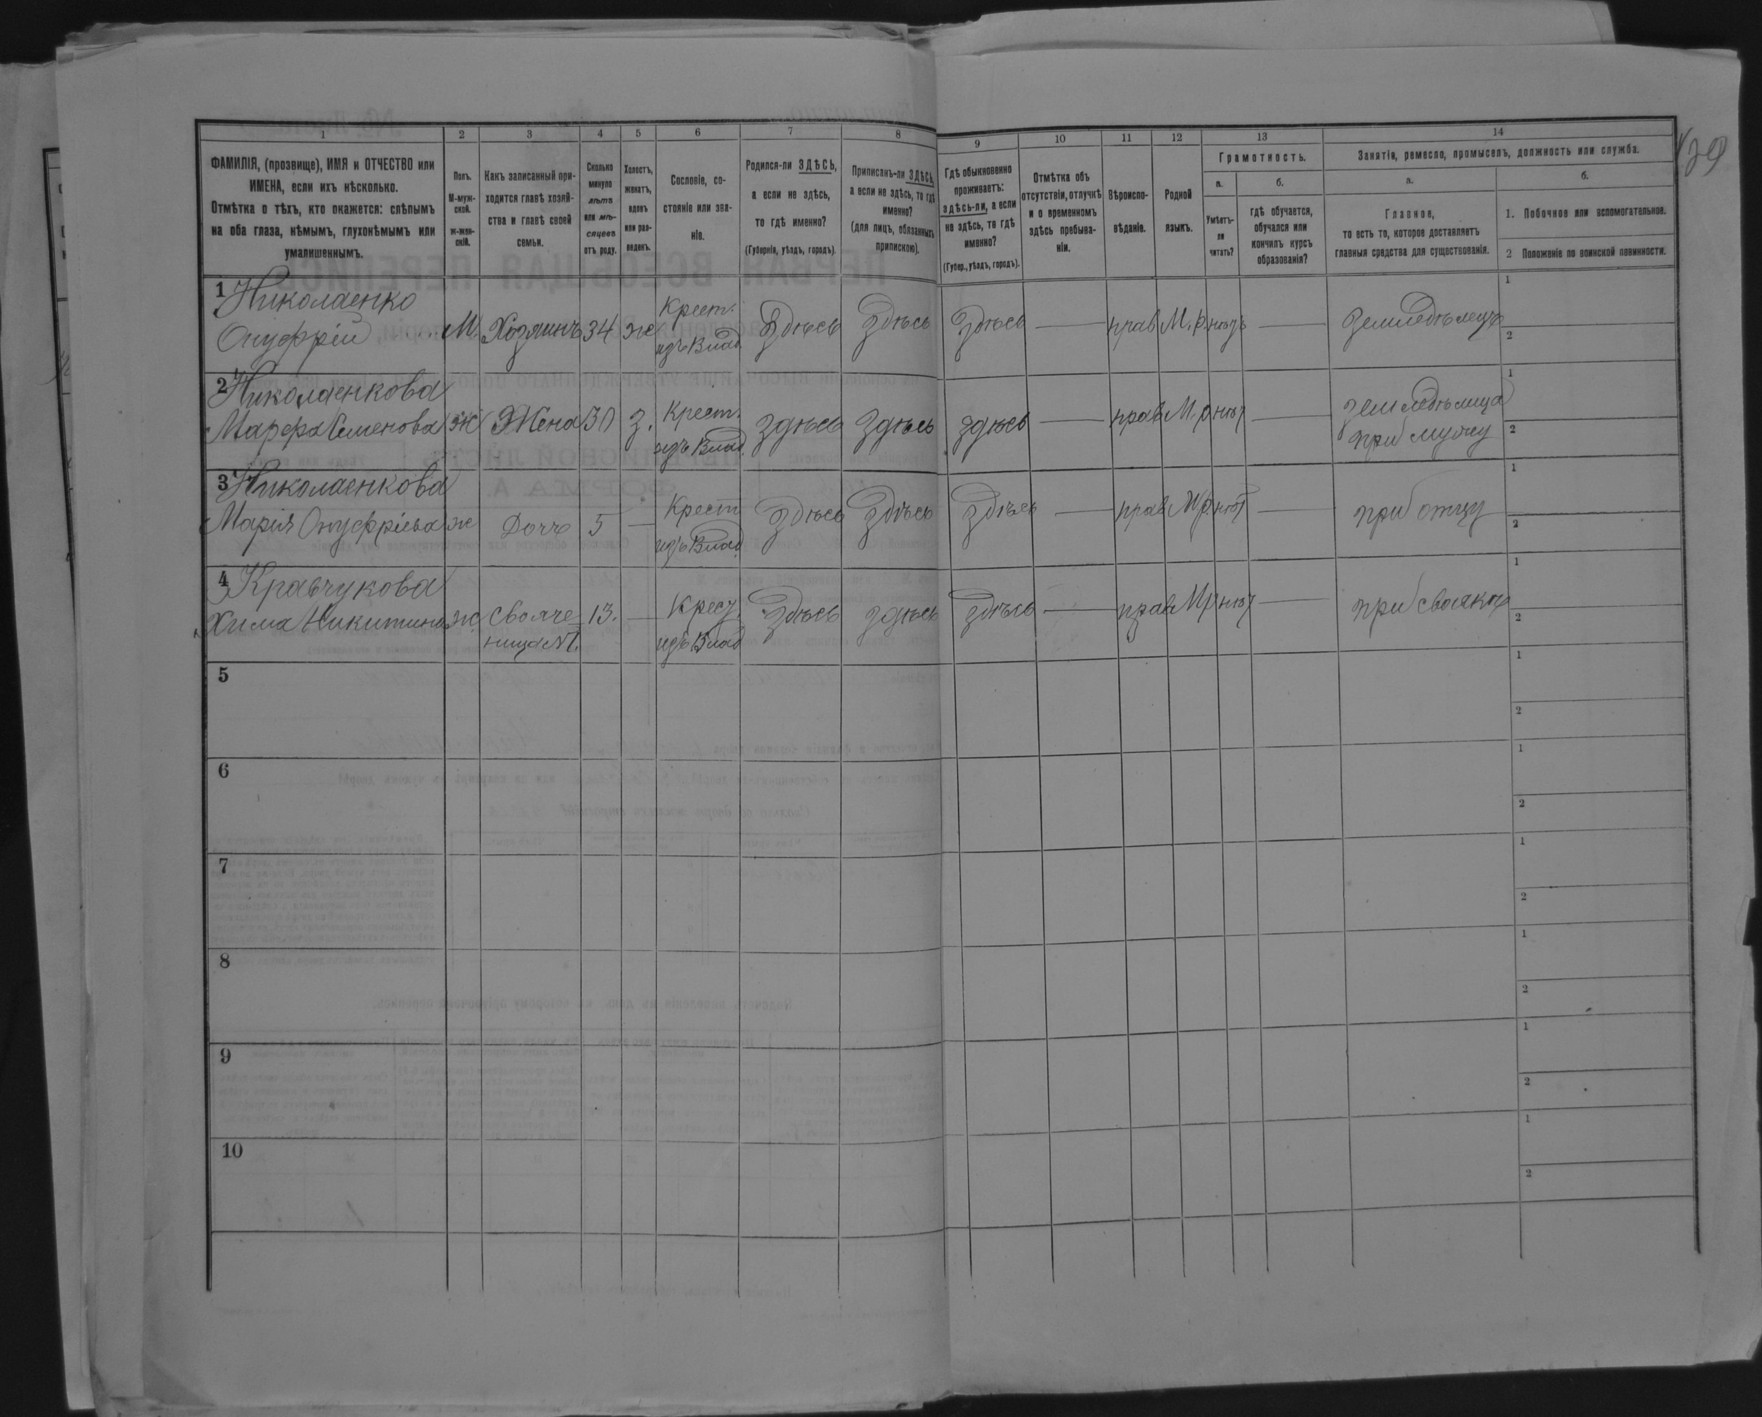 1
2
3
4
5
6
7
8
9
10
11
12
13
14
ФАМИЛІЯ, (прозвище), ИМЯ и ОТЧЕСТВО или
ИМЕНА, если ихъ нѣсколько.
Отмѣтка о тѣхъ, кто окажется: слѣпымъ
на оба глаза, нѣмымъ, глухонѣмымъ или
умалишеннымъ.
Полъ.
М-муж-
ской.
Ж-жен-
скій.
Какъ записанный при-
ходится главѣ хозяй-
ства и главѣ своей
семьи.
Сколько
минуло
лѣтъ
или мѣ-
сяцевъ
отъ роду.
Холостъ,
женатъ,
вдовъ
или раз-
веденъ.
Сословіе, со-
стояніе или зва-
ніе.
Родился-ли ЗДѢСЬ,
а если не здѣсь,
то гдѣ именно?
(Губернія, уѣздъ, городъ).
Приписанъ-ли ЗДѢСЬ,
а если не здѣсь, то гдѣ
именно?
(для лицъ, обязанныхъ
припискою).
Гдѣ обыкновенно
проживаетъ:
здѣсь-ли, а если
не здѣсь, то гдѣ
именно?
(Губер., уѣздъ, городъ).
Отмѣтка объ
отсутствіи, отлучкѣ
и о временномъ
здѣсь пребыва-
ніи.
Вѣроиспо-
вѣданіе.
Родной
языкъ.
Грамотность.
а.
Умѣетъ-
ли
читать?
б.
гдѣ обучается,
обучался или
кончилъ курсъ
образованія?
Занятіе, ремесло, промыселъ, должность или служба.
а.
Главное,
то есть то, которое доставляетъ
главныя средства для существованія.
б.
1. Побочное или вспомогательное.
2 Положеніе по воинской повинности.
1 Николаенко
Онуфрій М. Хозяинъ 34 же Крест. Здѣсь Здѣсь Здѣсь — прав М.р. нѣтъ — земледѣлецъ
изъ Влад.
1
2
2 Николаенкова
Марфа Семенова Ж Жена 30 з. Крест. здѣсь Здѣсь здѣсь — прав М.р. нѣт — земледѣлица
изъ Влад. при мужу
1
2
3 Николаенкова
Марія Онуфріева ж Дочь 5 — Крест Здѣсь Здѣсь Здѣсь — прав М.р. нѣт — при отцу
изъ Влад.
1
2
4 Кравчукова
Хима Никитина ж своячe 13. — Крест. Здѣсь здѣсь Здѣсь — прав М.р. нѣт — при своякѣ
ница №1. изъ Влад
1
2
5
1
2
6
1
2
7
1
2
8
1
2
9
1
2
10
1
2